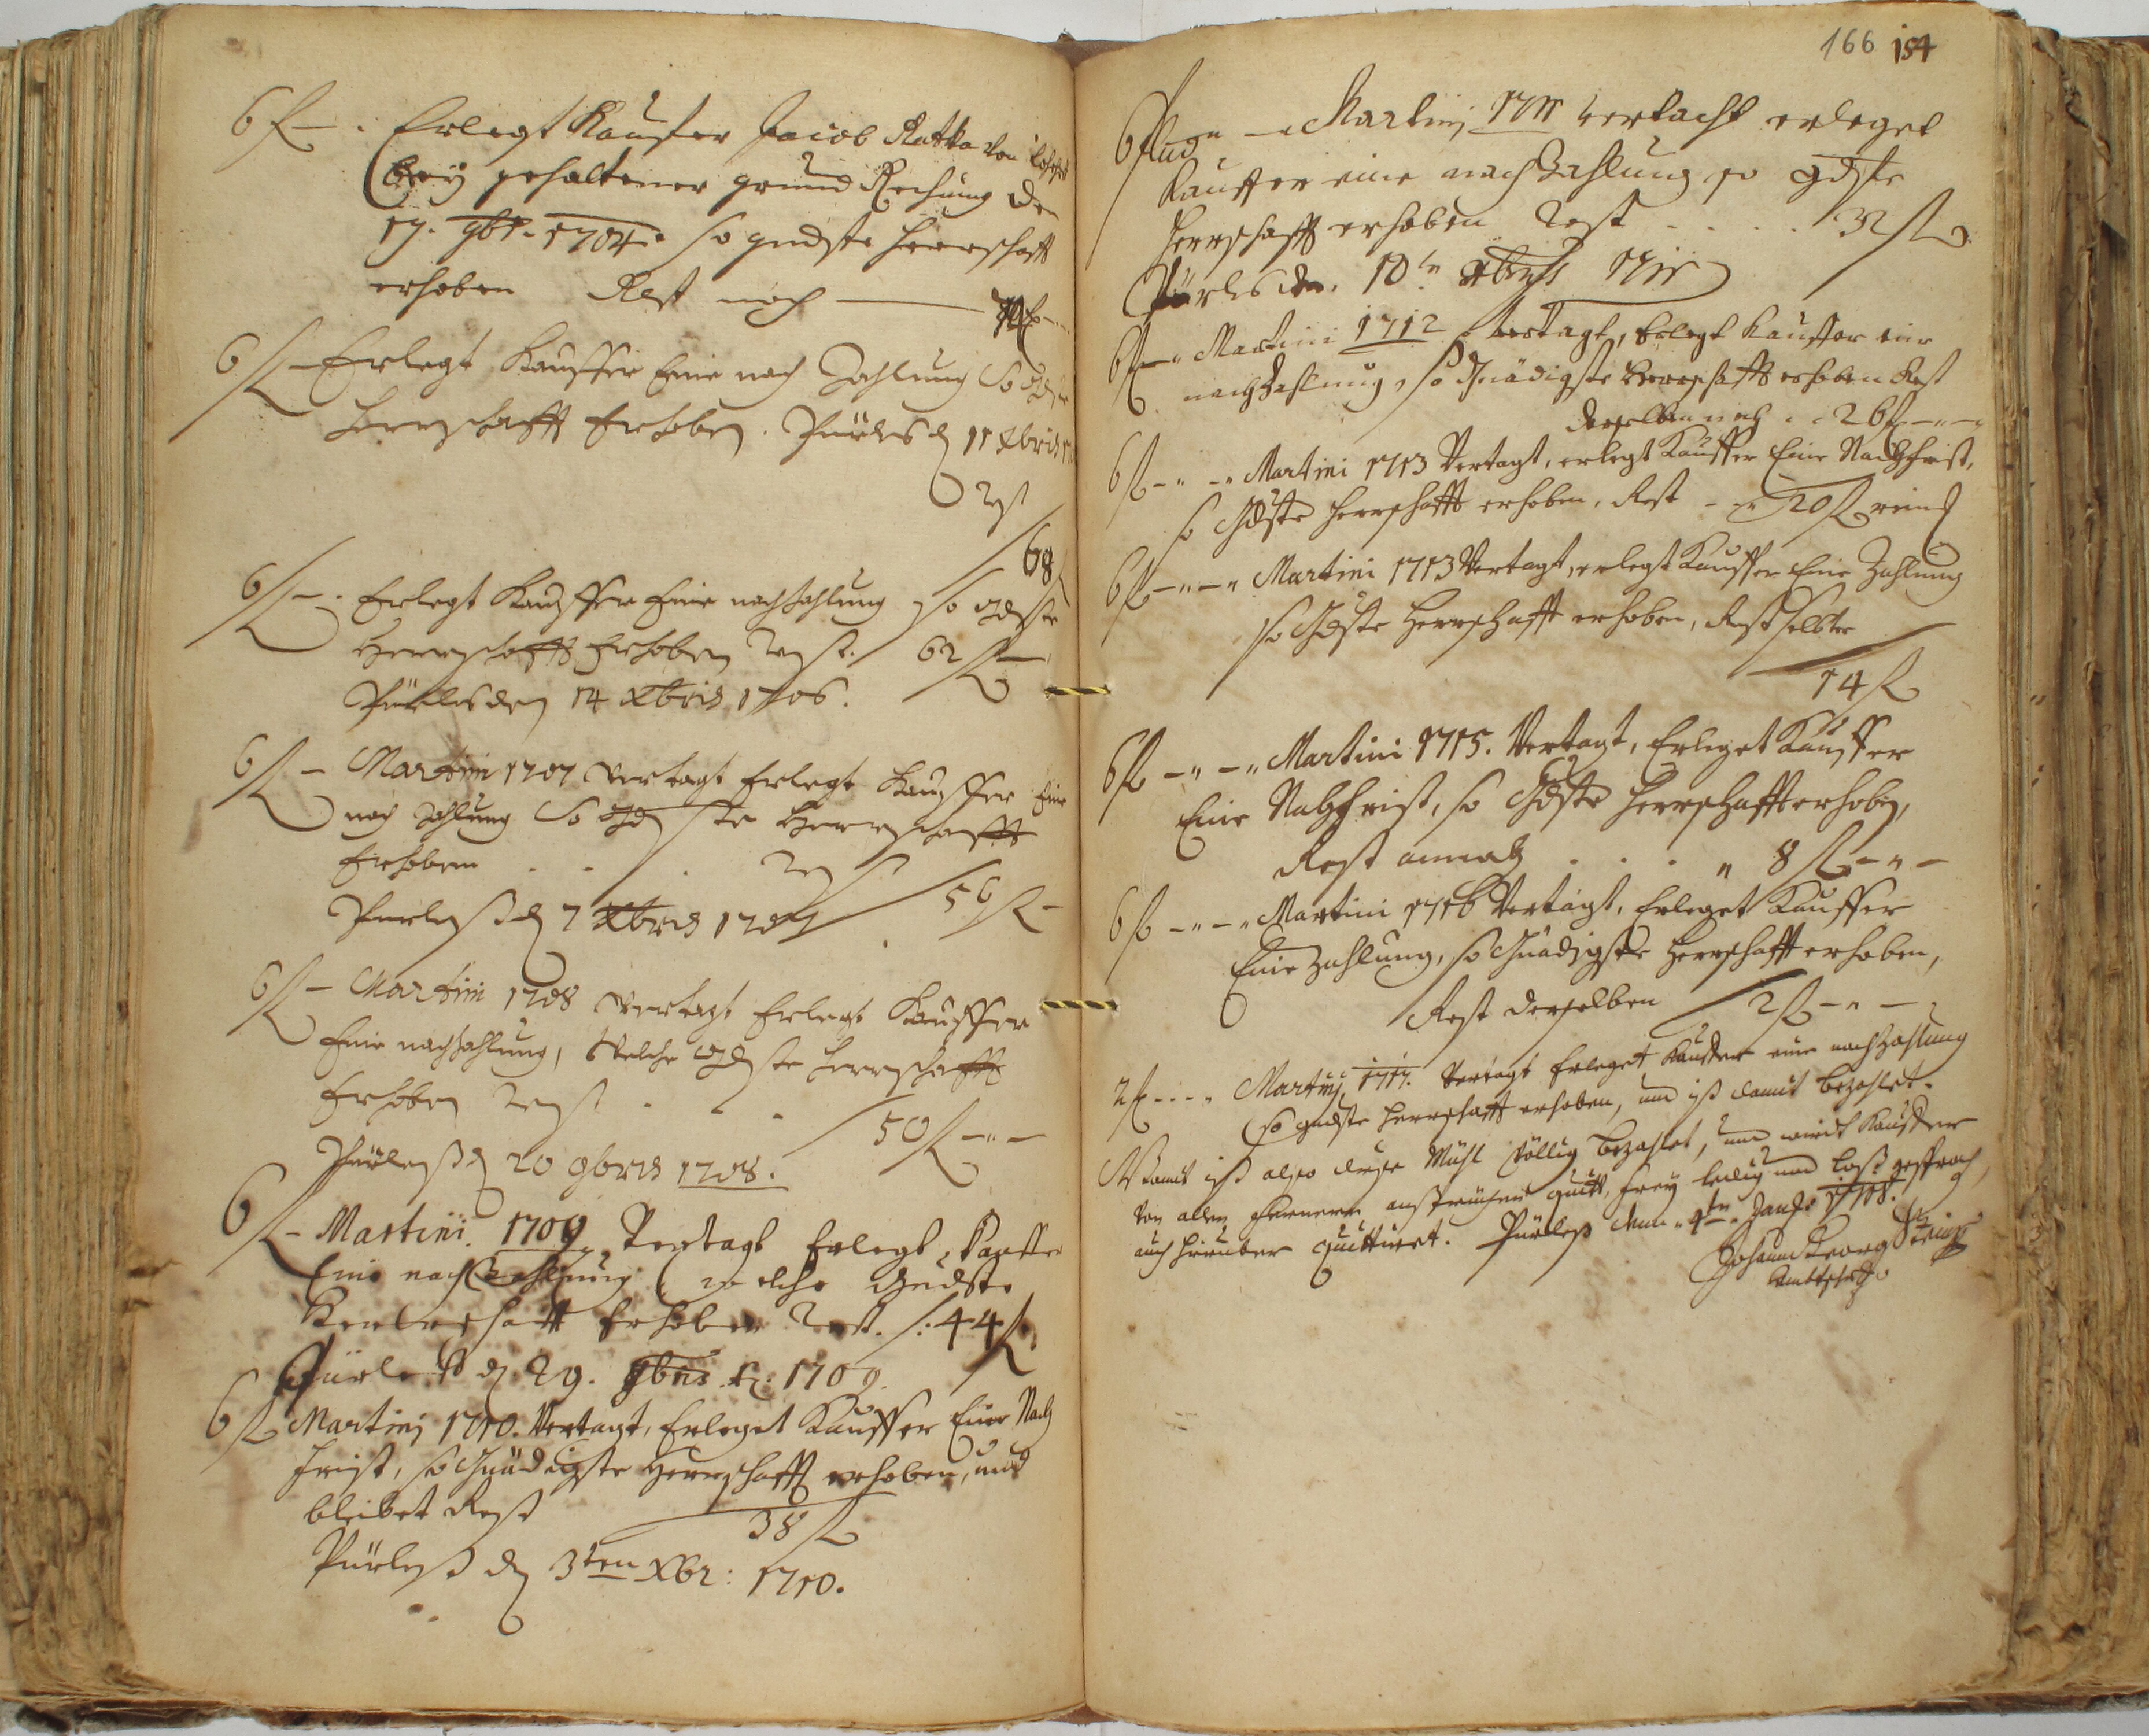 6 f – . Erlegt Kauffer Jacob Ratka von
bey gehaltener grund Rechnung den
17. 9br. 1704. so gndste Herrschafft
erhoben Rest noch
6 f – Erlegt Kauffer Eine nach Zahlung So gdste
Herrschafft Erhoben. Pürles d 11 Xbris
Rest
68
6 f – . Erlegt Kauffer Eine nachzahlung so gdste
Herrschafft Erhoben Rest. 62 f –
Pürles den 14 Xbris 1706.
6 f – Martini 1707 vertagt Erlegt Kauffer Eine
nach Zahlung So gdste Herrschafft
Erhoben . . . Rest
56 f –
Purleß d 7 Xbris 1707
6 f – Martini 1708 vertagt Erlegt Kauffer
Eine nachzahlung, Welche gdste Herrschafft
Erhoben Rest . . .
50 f – " –
Pürleß d 20 9bris 1708.
6 f – Martini. 1709 Vertagt Erlegt Kauffer
Eine nachzahlung welche Gndste
Herrschafft Erhoben Rest. /: 44 f
Pürleß d 29. 9bris 1709
6 f Martinj 1710. Vertagt, Erleget Kauffer Eine Nach
frist, so Gnädigste Herrschafft erhoben, und
bleibet Rest
38 f
Pürleß d 3ten Xbr: 1710.
166 154
6 f – " Martinj 1711 vertacht erleget
Kauffer eine nach Zahlung so gdste
Herrschafft erhoben Rest . . . . 32 f
Pürles den 10tn Xbris 1711
6 f – " Martini 1712 vertagt, Erlegt Kauffer eine
nachzahlung, so Gnädigste Herrschafft erhoben Rest
derselben noch . . 26 f – " –
6 f – " – " Martini 1713 Vertagt, erlegt Kauffer Eine Nachfrist,
so Gdste Herrschafft erhoben, Rest – " 20 f
6 f – " – " Martini 1713 Vertagt, erlegt Kauffer Eine Zahlung
so Gdste Herrschafft erhoben, Rest selbte
14 f
6 f – " – " Martini 1715. Vertagt, Erleget Kauffer
Eine Nachfrist, so Gdste Herrschafft erhoben,
Rest annoch . . . " 8 f – " –
6 f – " – " Martini 1716 Vertagt, Erleget Kauffer
Eine Zahlung, so Gnädigste Herrschafft erhoben,
Rest derselben 2 f – " –
2 f – – " Martinj 1717. Vertagt Erleget Kauffer eine nachzahlung
so gndste Herrschafft erhoben, und ist damit bezahlet.
Womit ist also diese Mühl völlig bezahlet, und wirdt Kauffer
von allen ferneren ansprüchen quitt, frey ledig und loß gesproch,
auch hierüber quittiret. Pürleß den 4ten Janr. 1718.
Johann Georg
Ambtschr